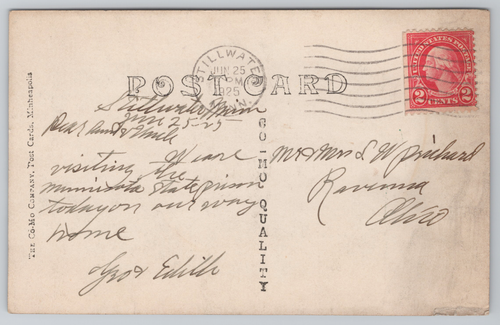 POST CARD
STILLWATER
JUN 25
PM
1925
MINN.
UNITED STATES POSTAGE
2 CENTS 2
THE CO-MO COMPANY, Post Cards, Minneapolis
CO-MO QUALITY
Stillwater Minn
June 25-25
Dear Aunt & Uncle
We are
visiting the
Minnesota State prison
today on our way
home
Geo & Edith
Mr & Mrs L W Prichard
Ravenna
Ohio